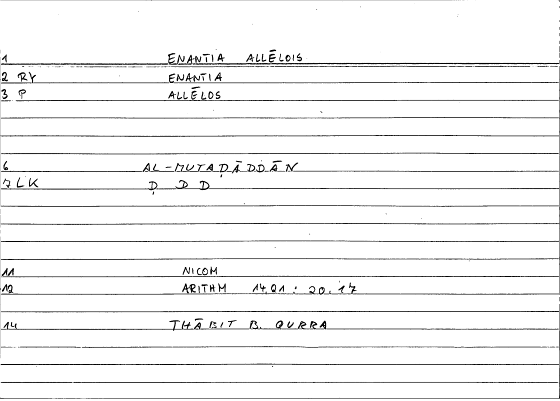 1 ENANTIA ALLĒLOIS
2 RY ENANTIA
3 P ALLĒLOS
6 AL-MUTAḌĀDDĀN
7 LK Ḍ D D
11 NICOM
12 ARITHM 14,01 : 20.17
14 THĀBIT B. QURRA